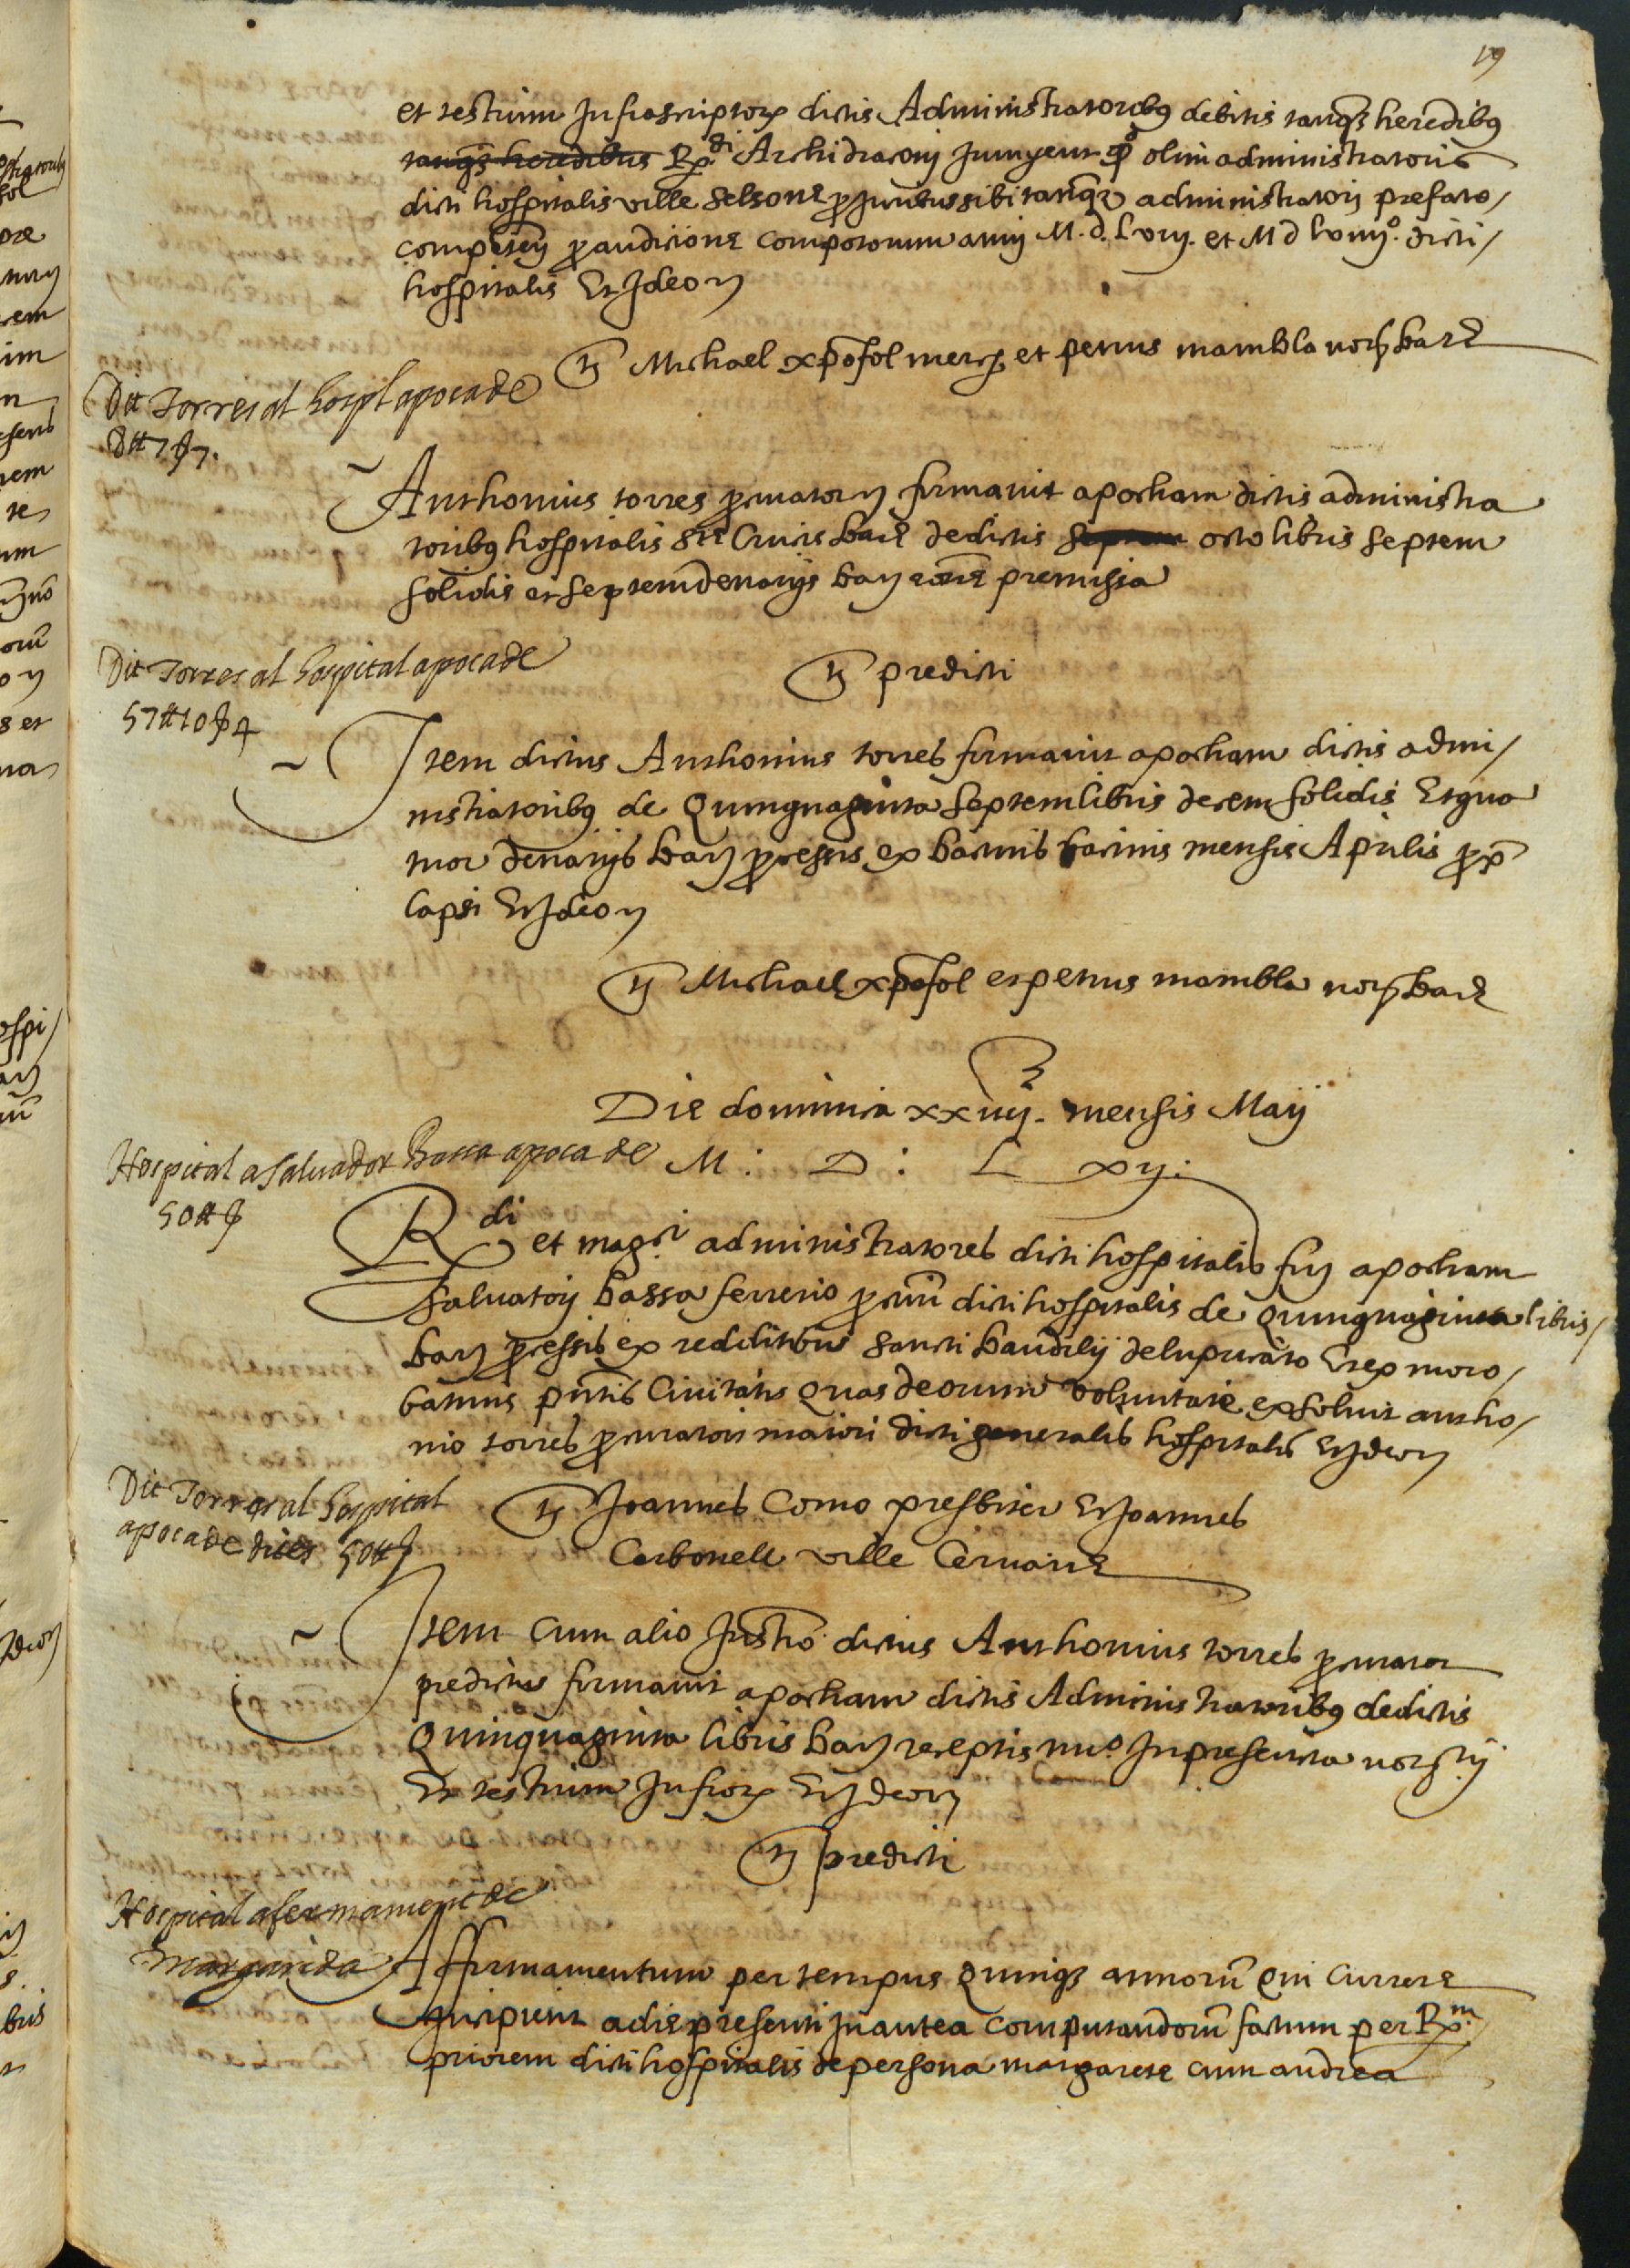 19
et testium Infrascriptorum dictis Administratoribus debitis tanquam heredibus
tanquam heredibus Rdi Archidiaconi quondam olim administratoris
dicti hospitalis ville Selsone pro Juribus sibi tanquam administratori prefato
competen pro audicione compotorum anni M. d. Lviij. et M d Lviiijo. dicti
hospitalis Et Ideo
Ts Michael xpofol merc et petrus mambla not bare
Dit Torres al hospl apoca de
8 ₶ 7 s 7.
Anthonius torres procurator firmavit apocham dictis administra
toribus hospitalis Ste Crucis bare de dictis septem octo libris septem
solidis et septem denarijs bar ratione premissa
Dit Torres al hospital apoca de
57 ₶ 10 s 4
Ts predicti
Item dictus Anthonius torres firmavit apocham dictis admi
nistratoribus de Quinquaginta septem libris decem solidis Et qua
tuor denarijs bar processis ex bacinis mensis Aprilis prox
lapsi Et Ideo
Ts Michael xpofol et petrus mambla not bare
Die dominica xxiiij. mensis Maij
M : D : L xij.
Hospital a Salvador Bassa apoca de
50 ₶ s
Rdi et magci administratores dicti hospitalis fir apocham
Salvatori bassa ferrerio dicti hospitalis de quinquaginta libris
bar processis ex redditibus sancti baudilij de lupricato Et ex moro
batinis pntis Civitatis Quas de orum voluntate exsolvit antho
nio torres procuratori maiori dicti generalis hospitalis Et Ideo
Dit Torres al hospital
apoca de dites 50 ₶ s
Ts Joannes Como presbiter Et Joannes
Carbonell ville Cervarie
Item cum alio Instro dictus Anthonius torres procurator
predictus firmavit apocham dictis Administratoribus de dictis
Quinquaginta libris bar receptis nuo In presentia not
Et testium Infror Et Ideo
Ts predicti
Hospital afermament de
Margarida
Affirmamentum per tempus quinque annorum qui currere
incipient a die presenti In antea computandorum factum per Rm
priorem dicti hospitalis de persona margarete cum andrea